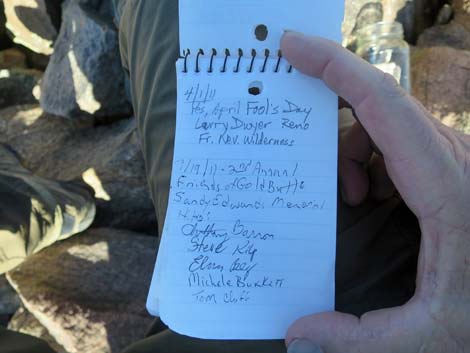 4/1/11
Yes, April Fool's Day
Larry Dwyer Reno
Fr. Nev. Wilderness
2nd Annual
Friends of Gold Butte
Sandy Edwards Memorial
Hike!
Barron
Steve
Michele Burkett
Tom